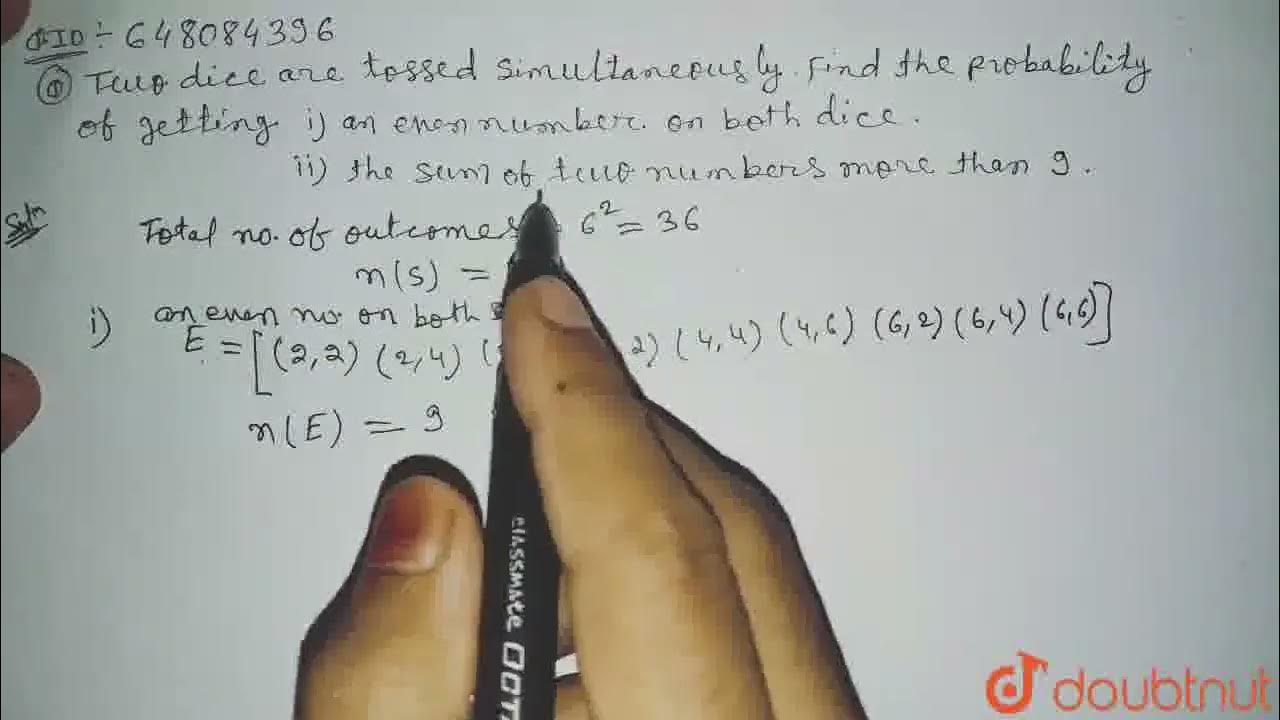 QID ÷ 648084396
Q Two dice are tossed simultaneously. Find the probability
of getting i) an even number. on both dice.
ii) the sum of two numbers more than 9.
Soln
Total no. of outcomes 6² = 36
n(S) =
i) an even no. on both
E = [(2,2) (2,4) ( 2) (4,4) (4,6) (6,2) (6,4) (6,6)]
n(E) = 9
classmate OCT
doubtnut